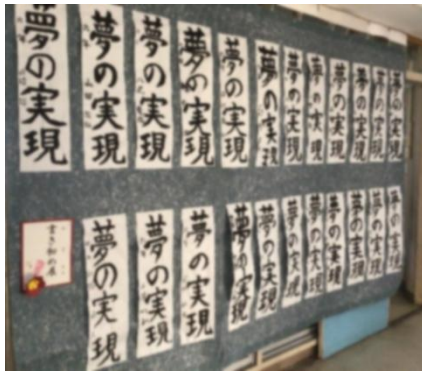 夢の実現
夢の実現
夢の実現
夢の実現
夢の実現
夢の実現
夢の実現
夢の実現
夢の実現
夢の実現
夢の実現
夢の実現
書き初め展
夢の実現
夢の実現
夢の実現
夢の実現
夢の実現
夢の実現
夢の実現
夢の実現
夢の実現
夢の実現
夢の実現